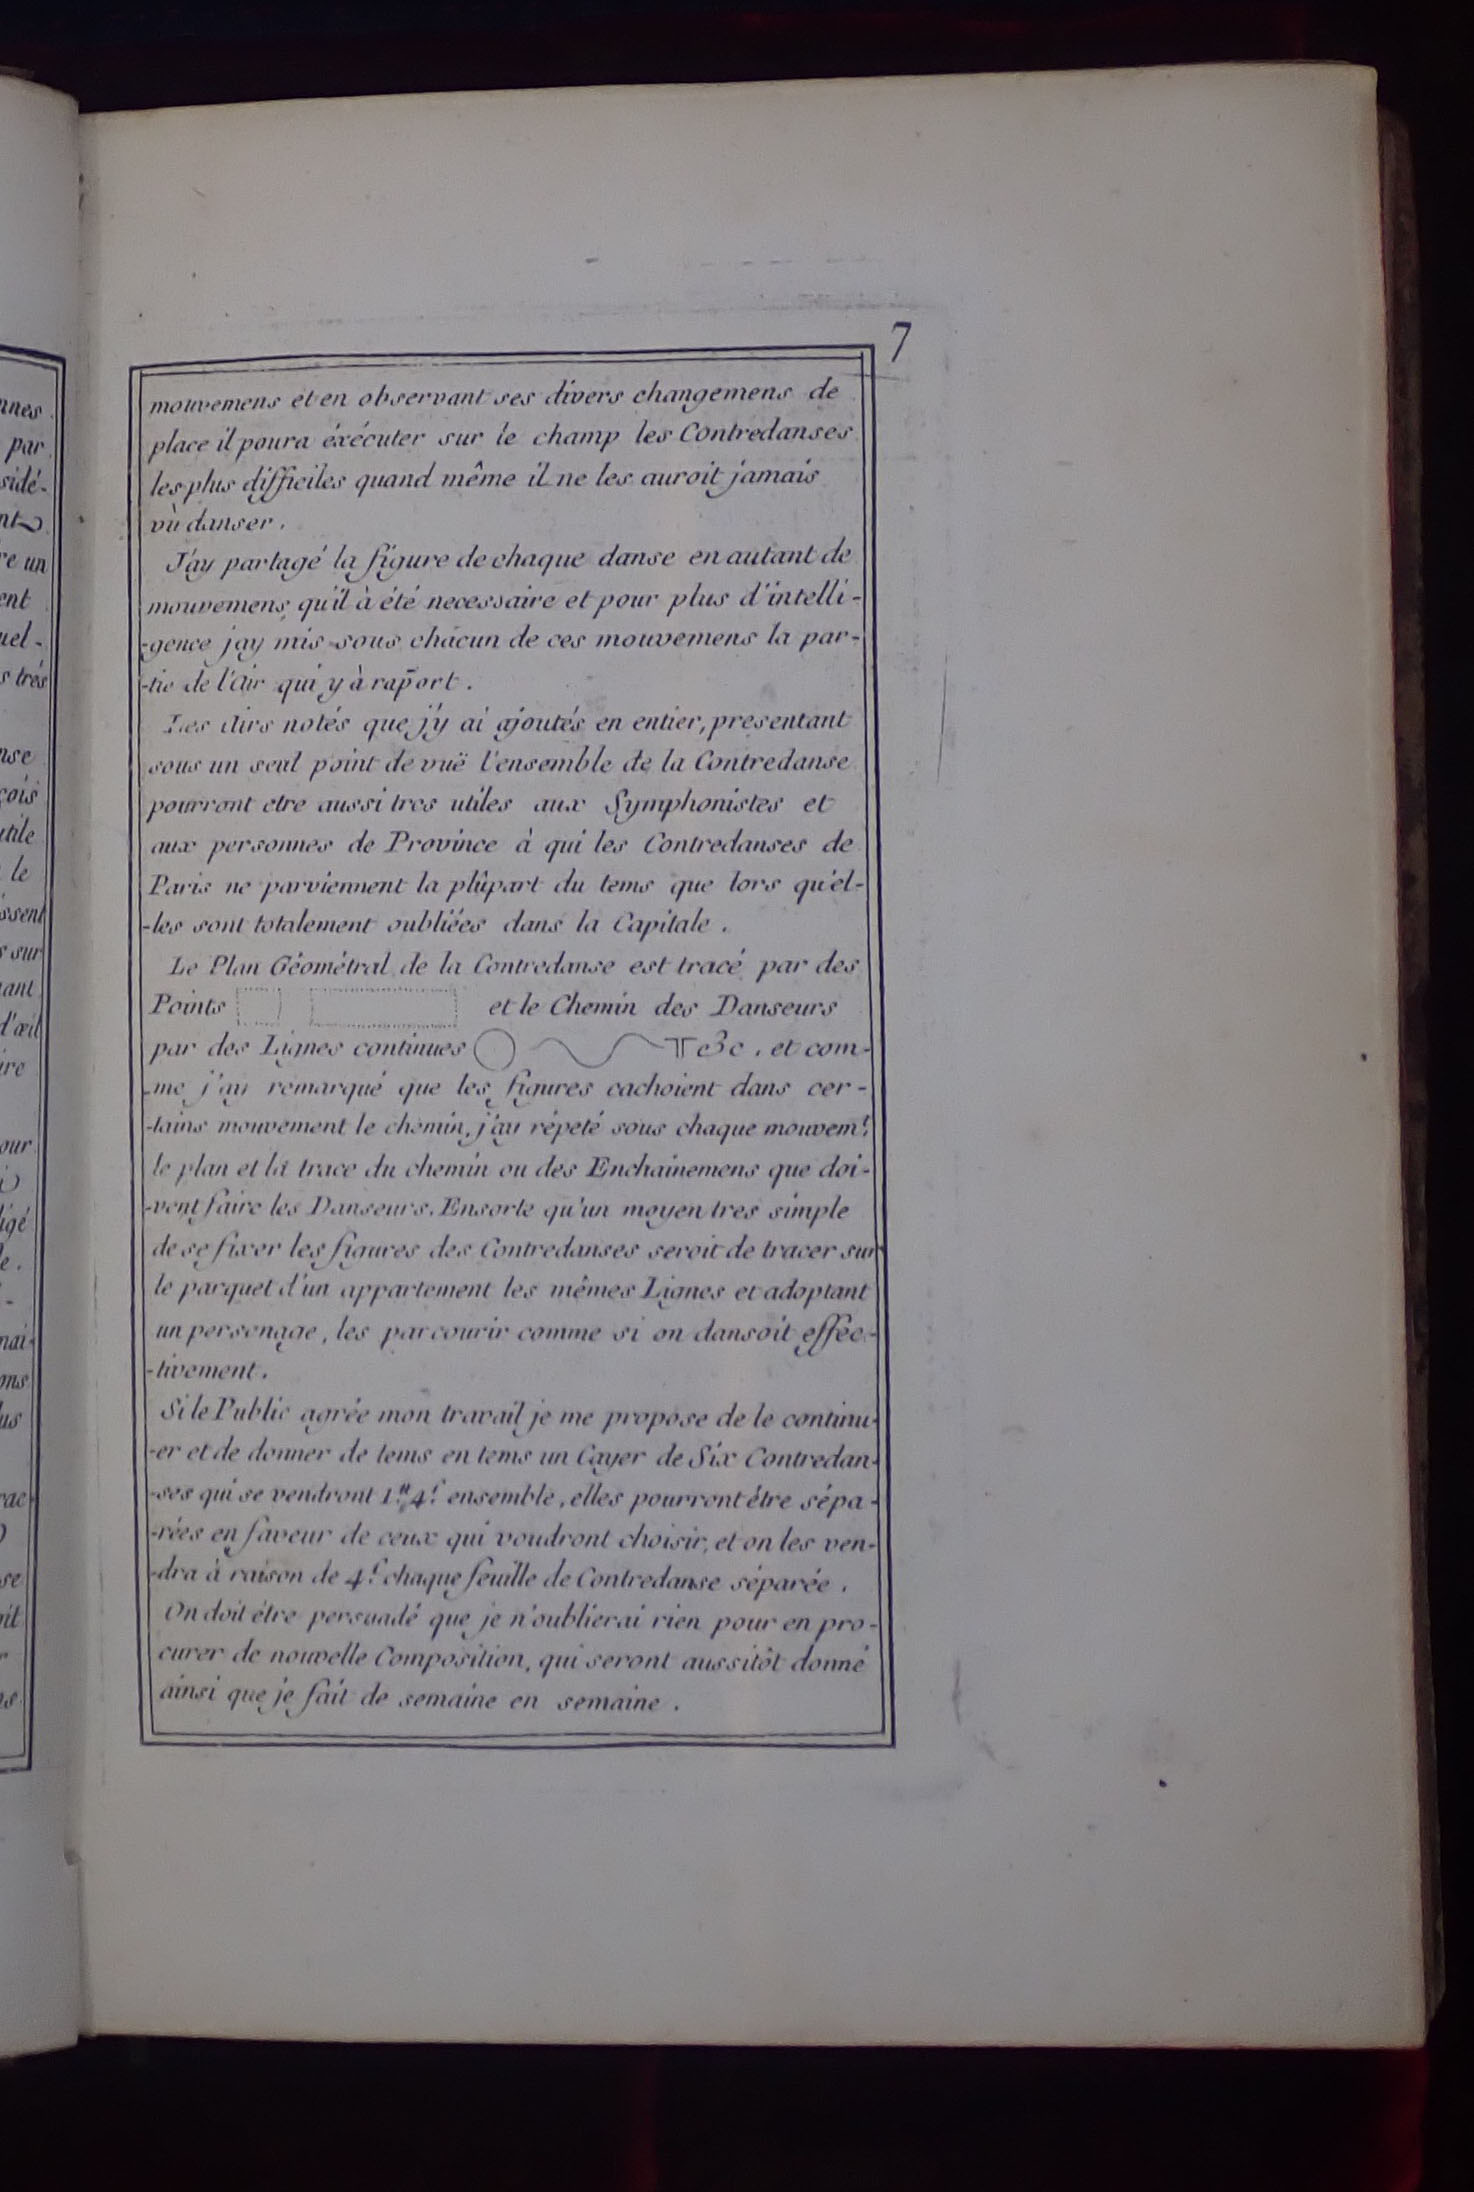 7
mouvemens et en observant ses divers changemens de
place il poura éxécuter sur le champ les Contredanses
les plus difficiles quand même il ne les auroit jamais
vù danser.
J'ay partagé la figure de chaque danse en autant de
mouvemens qu'il à été necessaire et pour plus d'intelli-
-gence jay mis sous chácun de ces mouvemens la par-
-tie de l'air qui y à raport.
Les airs notés que j'y ai ajoutés en entier, presentant
sous un seul point de vuë l'ensemble de la Contredanse
pourront etre aussi tres utiles aux Symphonistes et
aux personnes de Province à qui les Contredanses de
Paris ne parviennent la plûpart du tems que lors qu'el-
-les sont totalement oubliées dans la Capitale.
Le Plan Géométral de la Contredanse est tracé par des
Points et le Chemin des Danseurs
par des Lignes continues &c. et com-
-me j'ay remarqué que les figures cachoient dans cer-
-tains mouvement le chemin, j'ay répeté sous chaque mouvem.t
le plan et la trace du chemin ou des Enchainemens que doi-
-vent faire les Danseurs. Ensorte qu'un moyen tres simple
de se fixer les figures des Contredanses seroit de tracer sur
le parquet d'un appartement les mêmes Lignes et adoptant
un personage, les parcourir comme si on dansoit effec-
-tivement.
Si le Public agrée mon travail je me propose de le continu-
-er et de donner de tems en tems un Cayer de Six Contredan-
-ses qui se vendront 1.tt 4.s ensemble, elles pourront étre sépa-
-rées en faveur de ceux qui voudront choisir, et on les ven-
-dra à raison de 4.s chaque feuille de Contredanse séparée.
On doit étre persuadé que je n'oublierai rien pour en pro-
curer de nouvelle Composition, qui seront aussitôt donné
ainsi que je fait de semaine en semaine.
nnes
par
sidé-
re un
ent
uel-
s trés
nse
çois
utile
le
issent
s sur
nant
d'œil
ire
our
igé
le.
nai-
ons
lus
rac-
se
oit
ns